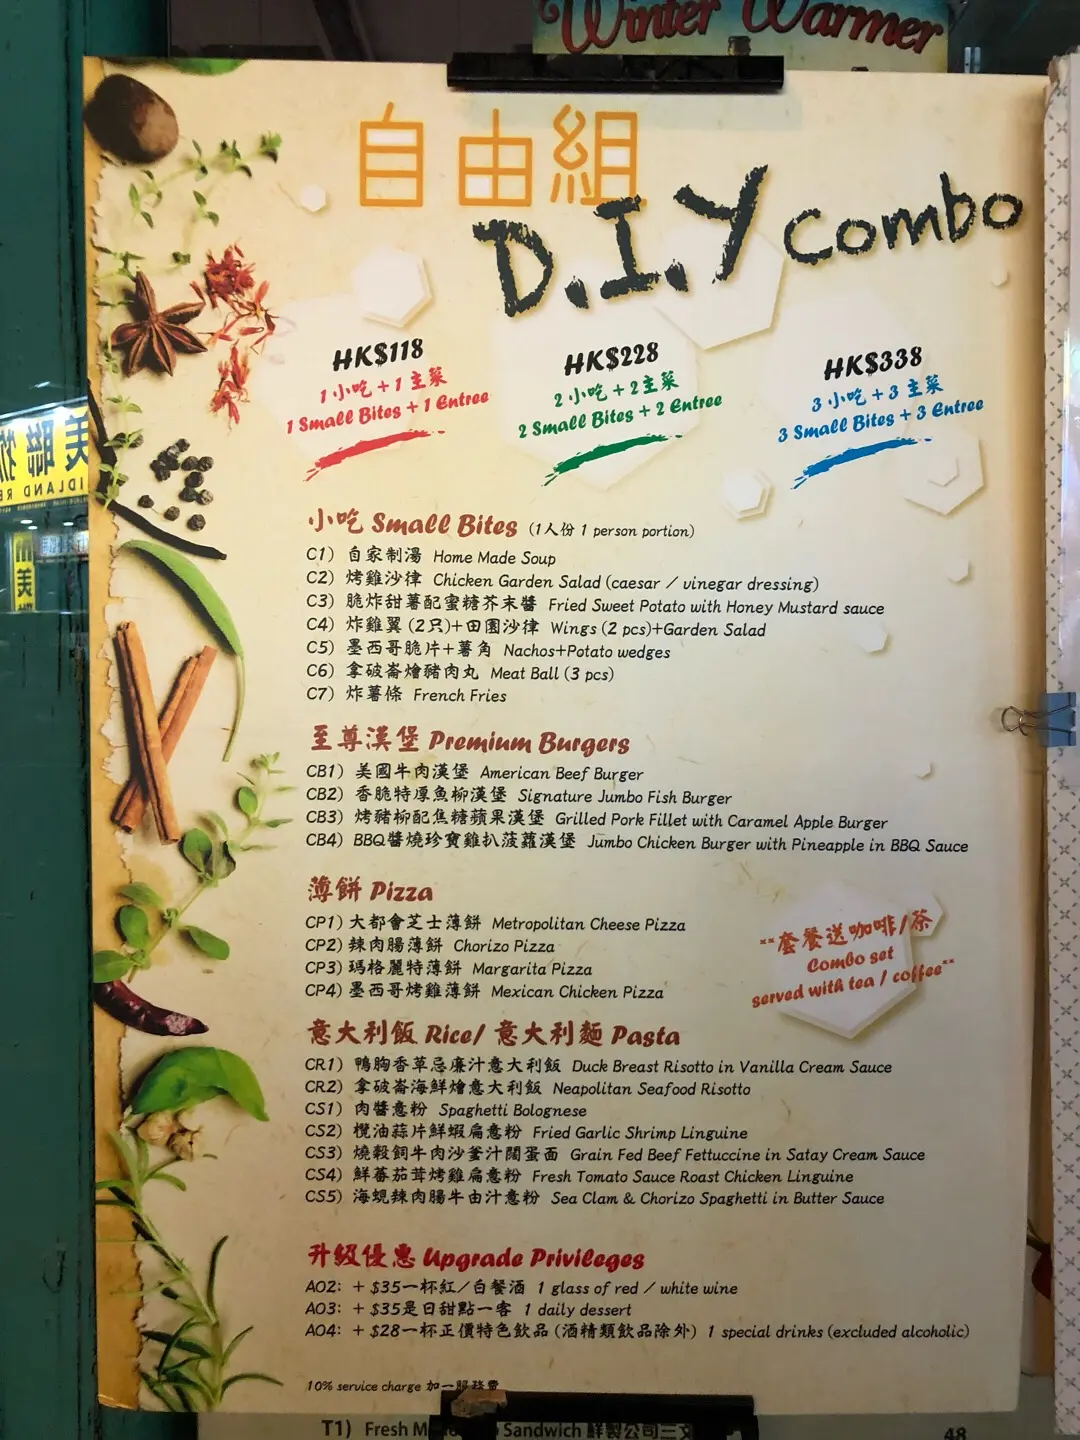 Winter Warmer
自由組
D.I.Y combo
HK$118
1 小吃 + 1 主菜
1 Small Bites + 1 Entree
HK$228
2 小吃 + 2 主菜
2 Small Bites + 2 Entree
HK$338
3 小吃 + 3 主菜
3 Small Bites + 3 Entree
小吃 Small Bites (1人份 1 person portion)
C1) 自家制湯 Home Made Soup
C2) 烤雞沙律 Chicken Garden Salad (caesar / vinegar dressing)
C3) 脆炸甜薯配蜜糖芥末醬 Fried Sweet Potato with Honey Mustard sauce
C4) 炸雞翼 (2只)+田園沙律 Wings (2 pcs)+Garden Salad
C5) 墨西哥脆片+薯角 Nachos+Potato wedges
C6) 拿破崙燴豬肉丸 Meat Ball (3 pcs)
C7) 炸薯條 French Fries
至尊漢堡 Premium Burgers
CB1) 美國牛肉漢堡 American Beef Burger
CB2) 香脆特厚魚柳漢堡 Signature Jumbo Fish Burger
CB3) 烤豬柳配焦糖蘋果漢堡 Grilled Pork Fillet with Caramel Apple Burger
CB4) BBQ醬燒珍寶雞扒菠蘿漢堡 Jumbo Chicken Burger with Pineapple in BBQ Sauce
薄餅 Pizza
CP1) 大都會芝士薄餅 Metropolitan Cheese Pizza
CP2) 辣肉腸薄餅 Chorizo Pizza
CP3) 瑪格麗特薄餅 Margarita Pizza
CP4) 墨西哥烤雞薄餅 Mexican Chicken Pizza
**套餐送咖啡/茶
Combo set
served with tea / coffee**
意大利飯 Rice/ 意大利麵 Pasta
CR1) 鴨胸香草忌廉汁意大利飯 Duck Breast Risotto in Vanilla Cream Sauce
CR2) 拿破崙海鮮燴意大利飯 Neapolitan Seafood Risotto
CS1) 肉醬意粉 Spaghetti Bolognese
CS2) 欖油蒜片鮮蝦扁意粉 Fried Garlic Shrimp Linguine
CS3) 燒穀飼牛肉沙爹汁闊蛋面 Grain Fed Beef Fettuccine in Satay Cream Sauce
CS4) 鮮蕃茄茸烤雞扁意粉 Fresh Tomato Sauce Roast Chicken Linguine
CS5) 海蜆辣肉腸牛由汁意粉 Sea Clam & Chorizo Spaghetti in Butter Sauce
升級優惠 Upgrade Privileges
AO2: + $35一杯紅/白餐酒 1 glass of red / white wine
AO3: + $35是日甜點一客 1 daily dessert
AO4: + $28一杯正價特色飲品 (酒精類飲品除外) 1 special drinks (excluded alcoholic)
10% service charge 加一服務費
T1) Fresh Sandwich 鮮製公司三文 48